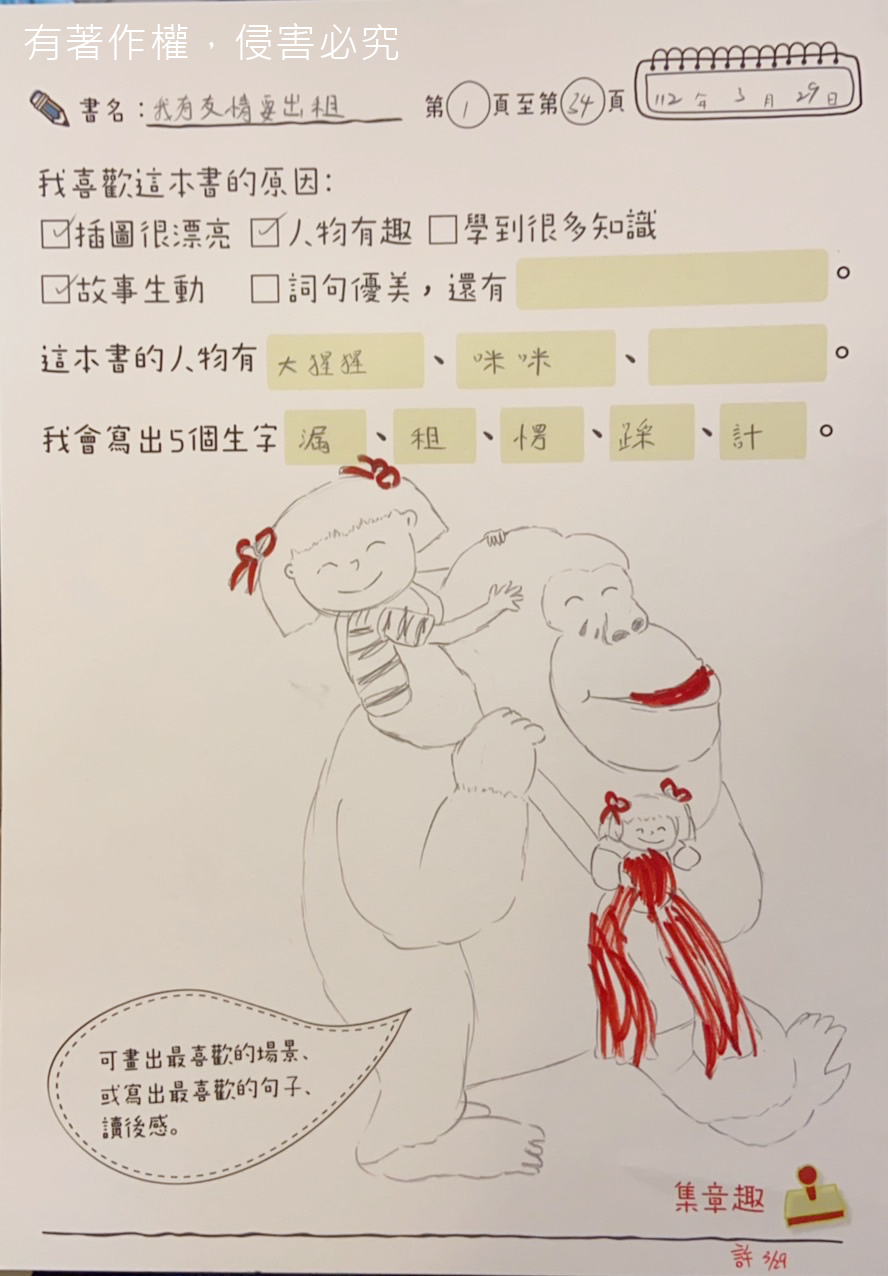 有著作權，侵害必究
書名：我有友情要出租 第1頁至第34頁 112年3月29日
我喜歡這本書的原因：
☑插圖很漂亮 ☑人物有趣 □學到很多知識
☑故事生動 □詞句優美，還有 。
這本書的人物有 大猩猩、咪咪、 。
我會寫出5個生字 漏、租、愣、踩、計。
可畫出最喜歡的場景、
或寫出最喜歡的句子、
讀後感。
集章趣
許 3/29